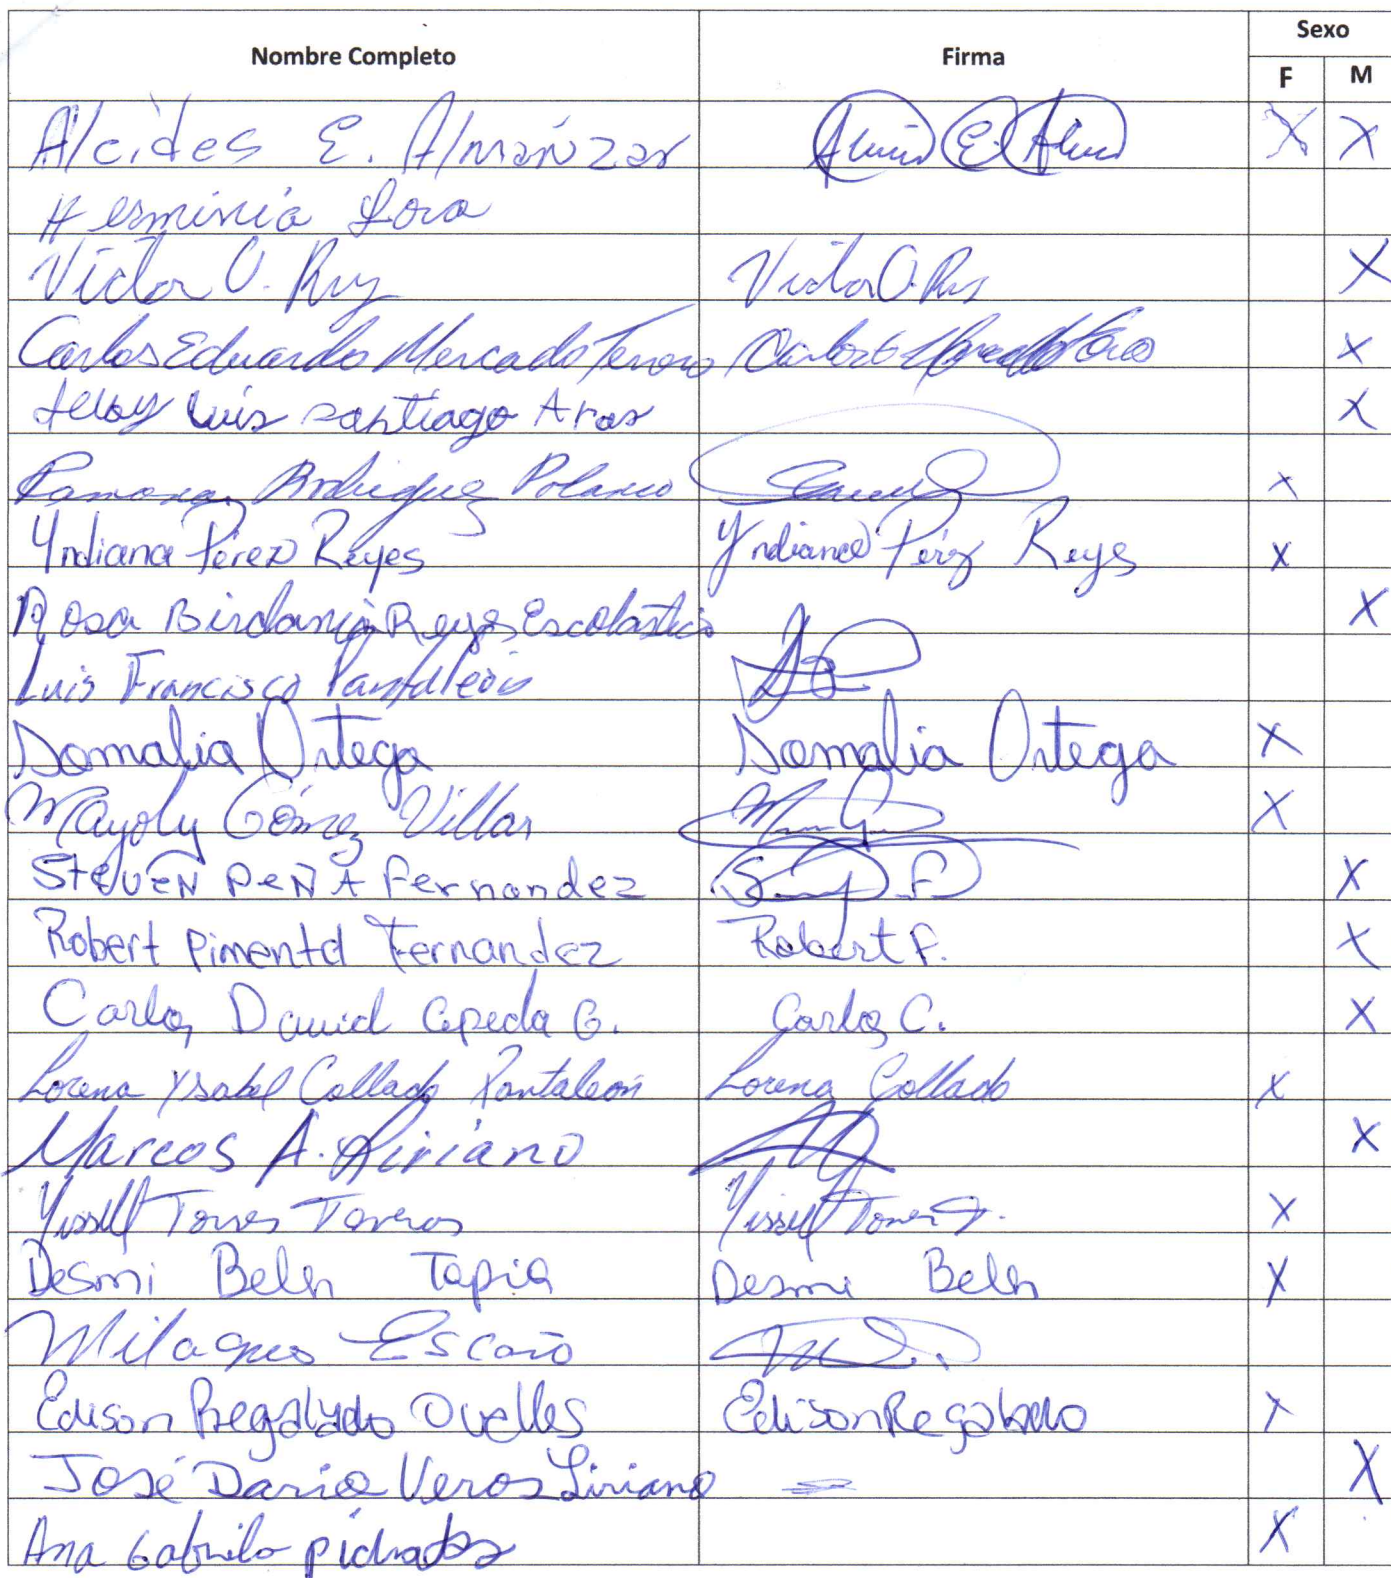 Nombre Completo Firma Sexo
F M
Alcides E. Almánzar X X
Herminia Lora
Victor O. Ruz Victor O. Rus X
Carlos Eduardo Mercado Terrero X
Luis Santiago Aras X
Ramona Rodriguez Polanco X
Yndiana Pérez Reyes Yndiana Pérez Reyes X
Rosa Birdania Reyes Escolastico X
Luis Francisco Pantaleón
Somalia Ortega Somalia Ortega X
Mayoly Gómez Villar X
Steven Peña Fernandez X
Robert Pimentel Fernandez Robert F. X
Carlos David Cepeda G. Carlos C. X
Lorena Ysabel Collado Pantaleón Lorena Collado X
Marcos A. Liriano X
Yissell Torres Taveras Yissell Torres T. X
Desmi Belen Tapia Desmi Belen X
Milagros Escaño
Edison Regalado Ovalles Edison Regalado X
José Dario Veras Liriano X
Ana Gabriela X